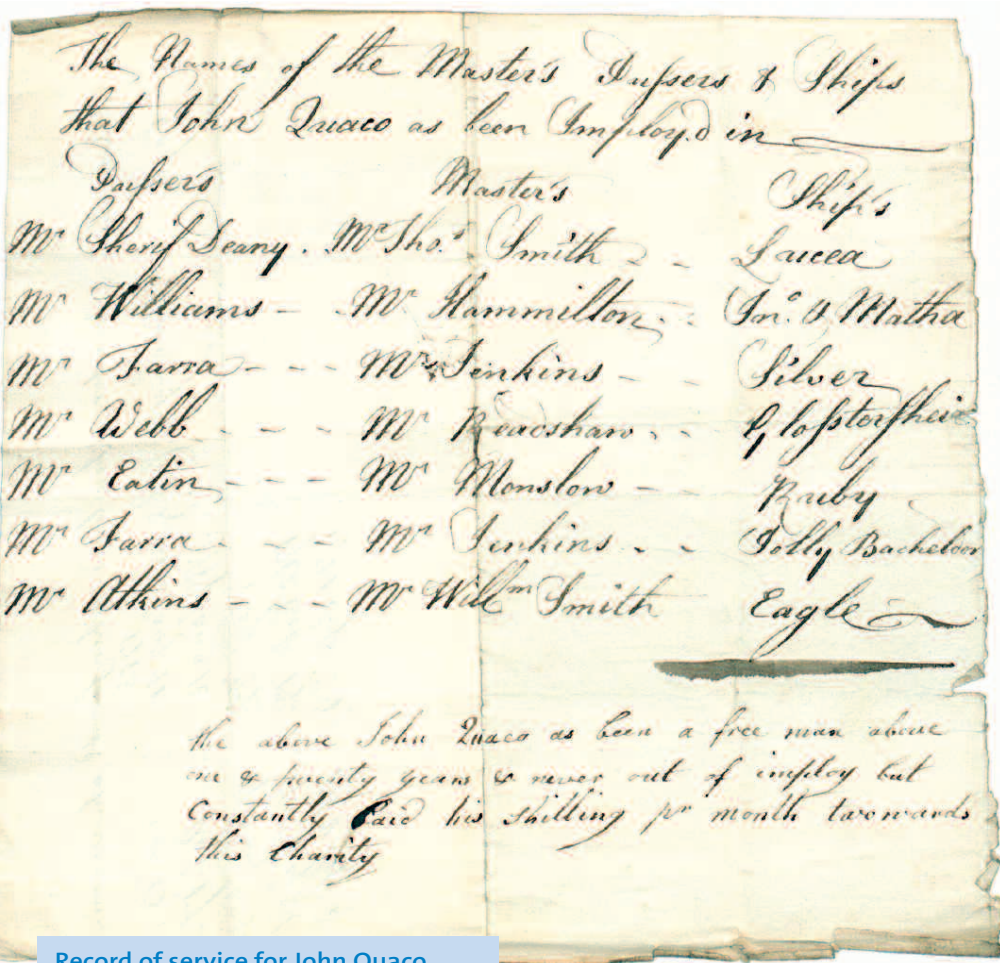 The Names of the Master's Pursers & Ships
that John Quaco as been Imploy.d in
Purser's Master's Ship's
Mr Sherif Deany . Mr Tho.s Smith - - Lucea
Mr Williams - Mr Hammilton - - Jn.o & Matha
Mr Farra - - - Mr Jenkins - - Silver
Mr Webb - - - Mr Readshaw - -
Mr Eatin - - - Mr Monslow - - Ruby
Mr Farra - - - Mr Jenkins - - Jolly Bacheloor
Mr Atkins - - - Mr Willm Smith Eagle
the above John Quaco as been a free man above
one & twenty years & never out of imploy but
Constantly Paid his shilling pr month towards
this Charity
Record of service for John Quaco